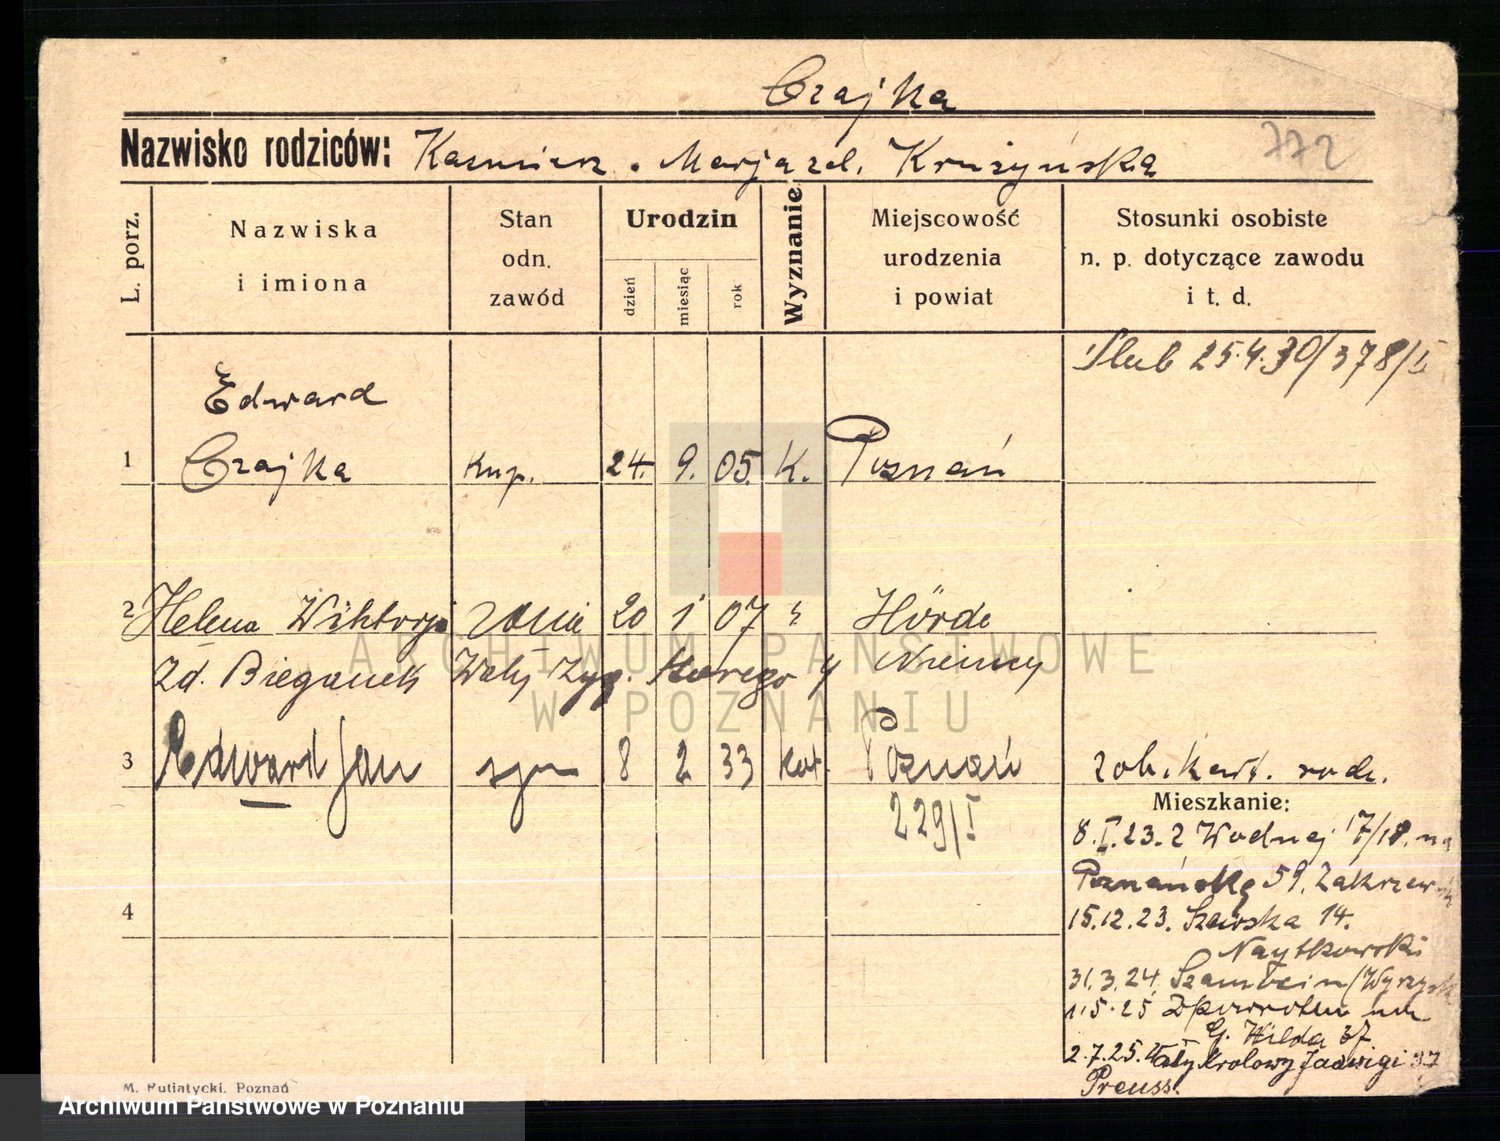 Czajka
Nazwisko rodziców: Kazimierz . Marja zd. Krużyńska
772
L. porz.
Nazwiska
i imiona
Stan
odn.
zawód
Urodzin
dzień
miesiąc
rok
Wyznanie
Miejscowość
urodzenia
i powiat
Stosunki osobiste
n. p. dotyczące zawodu
i t. d.
Ślub 25.4.30/378/I
Edward
1 Czajka kup. 24. 9. 05. K. Poznań
2 Helena Wiktorja żona 20 1 07 Hörde
Zd. Bieganek Wały Zyg. Starego 4 Niemcy
3 Edward Jan syn 8 2 33 kat. Poznań zob. kart. rodz.
229/I
Mieszkanie:
8.I.23. z Wodnej 17/18. na
Poznańską 59. Zakrzew
4
15.12.23. Szewska 14.
31.3.24.
1.5.25 Zpowrotem
G. Wilda 37
2.7.25. Wały Krolowy Jadwigi 37
Preuss.
M. Putiatycki, Poznań
ARCHIWUM PAŃSTWOWE
W POZNANIU
Archiwum Państwowe w Poznaniu